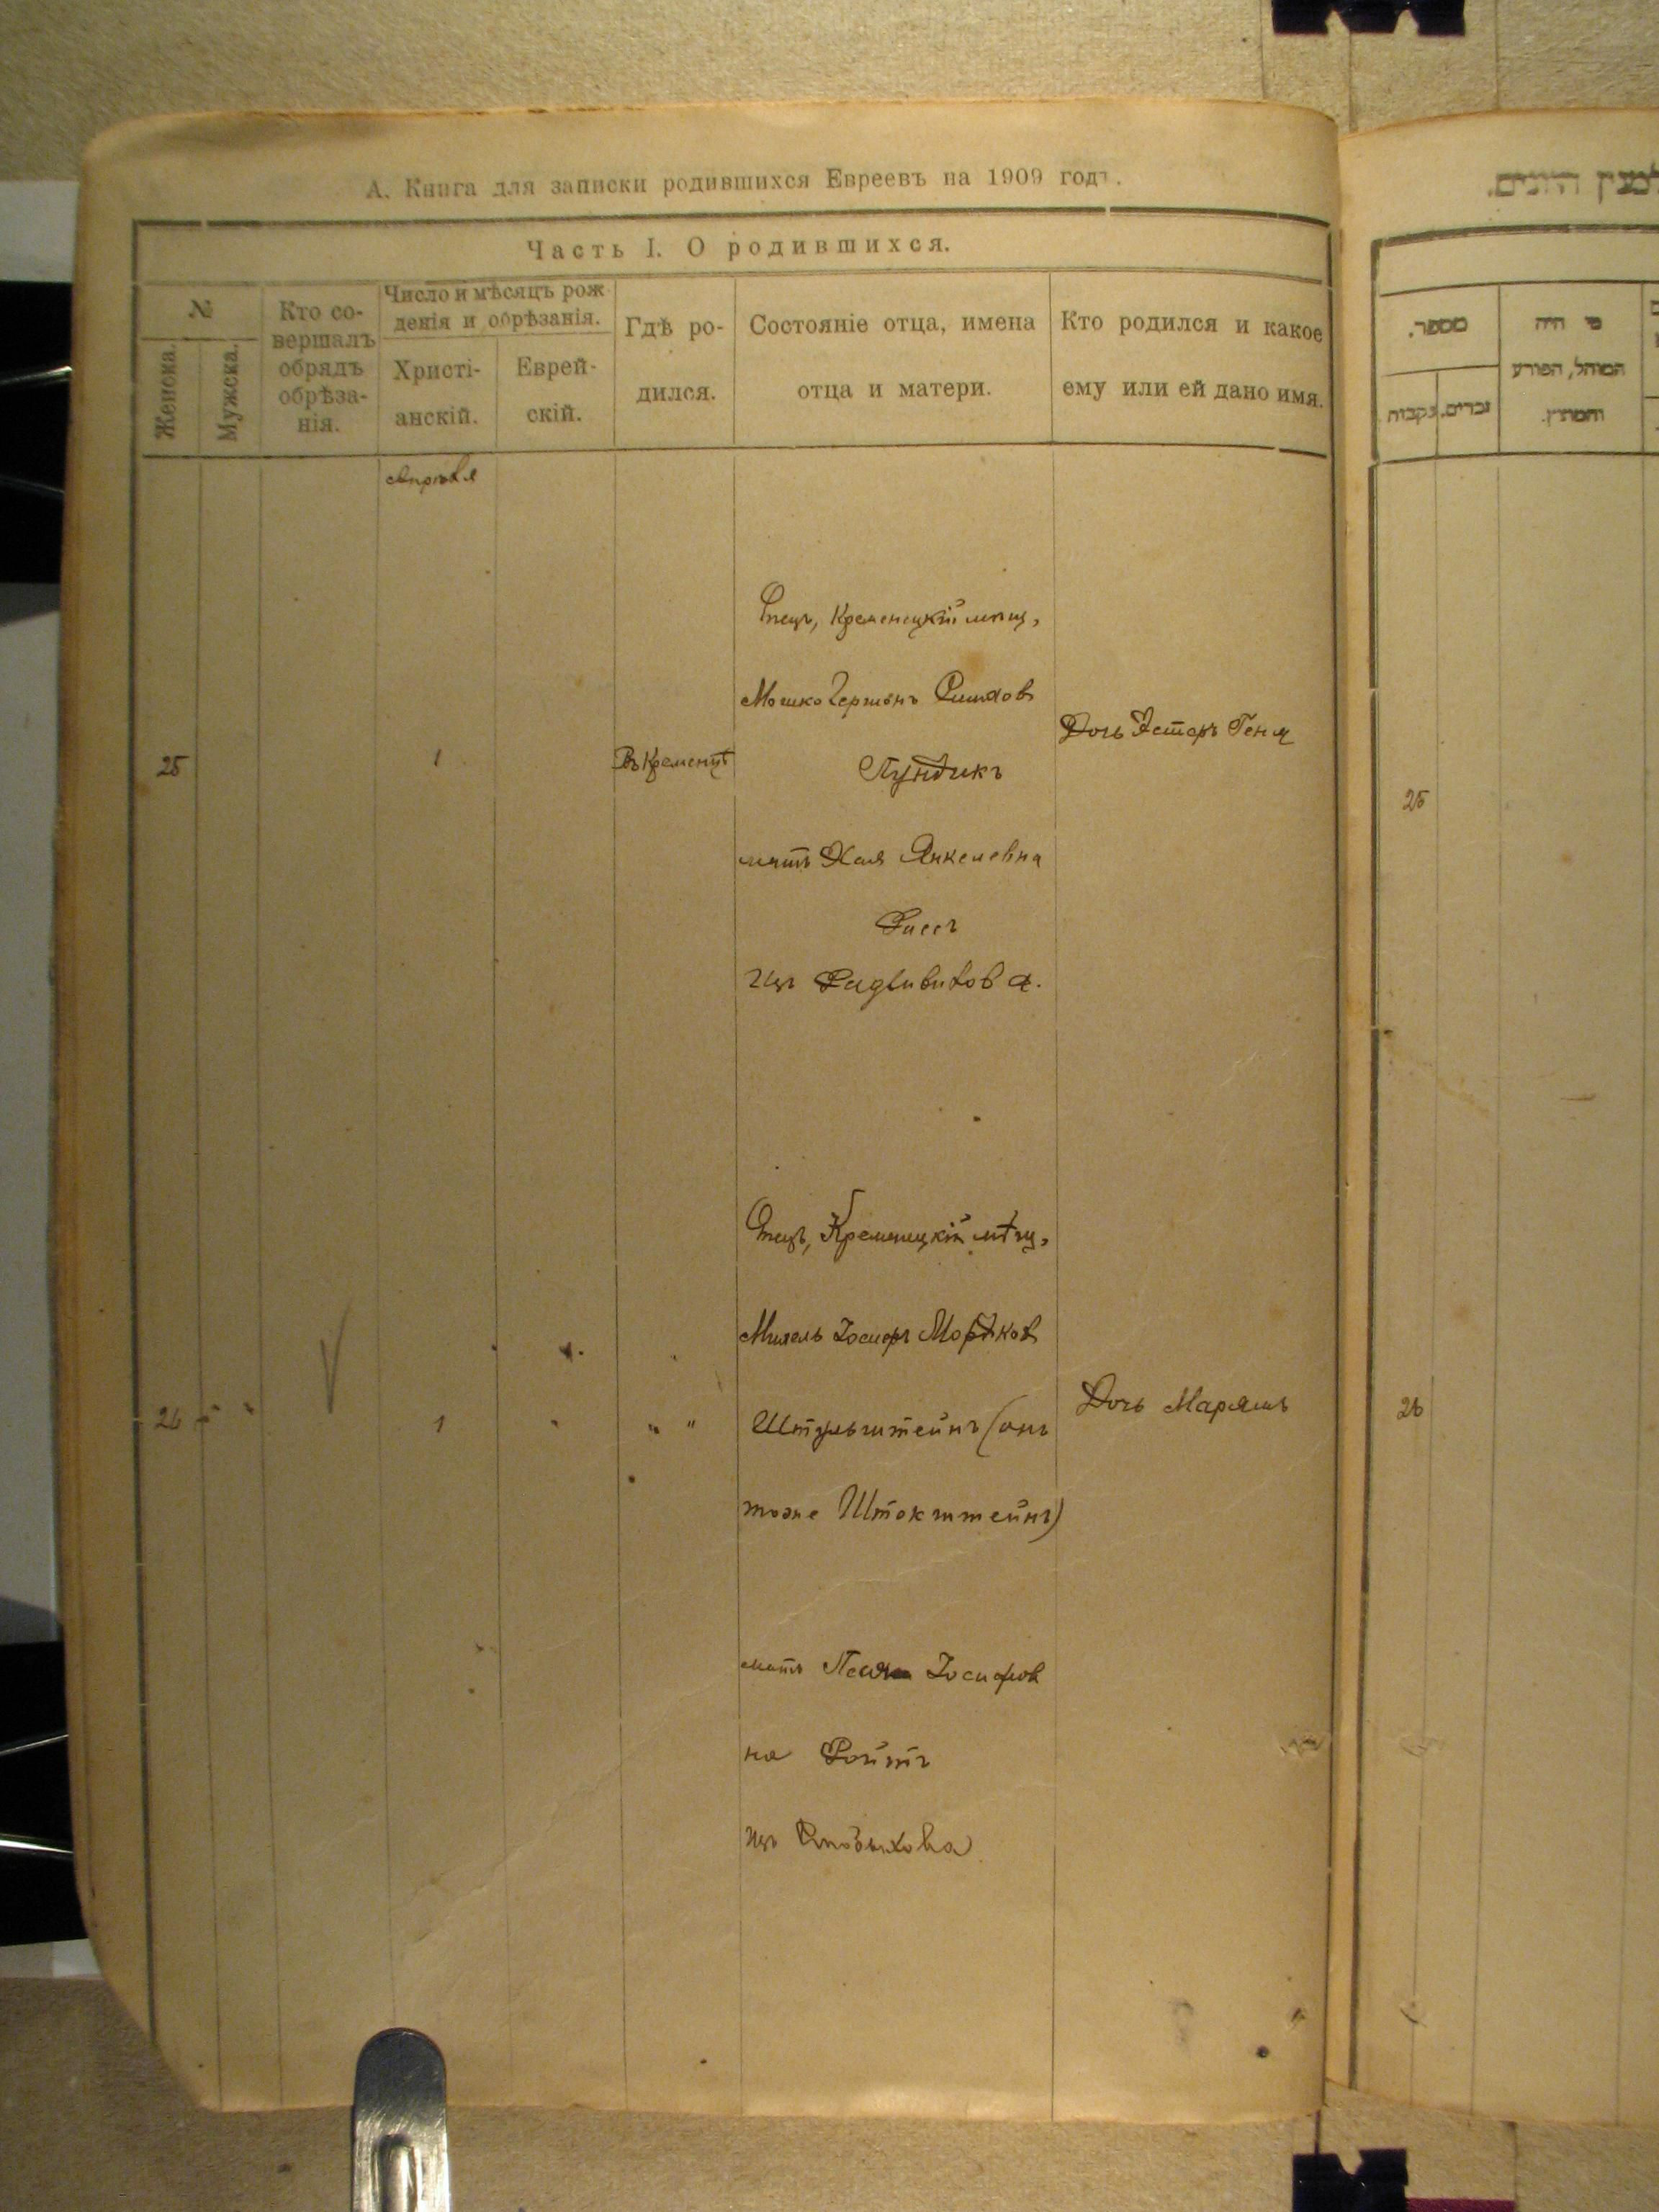 А. Книга для записки родившихся Евреевъ на 1909 годъ.
Часть I. О родившихся.
№
Женска.
Мужска.
Кто со-
вершалъ
обрядъ
обрѣза-
нія.
Число и мѣсяцъ рож
денія и обрѣзанія.
Христі-
анскій.
Еврей-
скій.
Гдѣ ро-
дился.
Состояніе отца, имена
отца и матери.
Кто родился и какое
ему или ей дано имя.
Апрѣля
25
1
Въ Кременцѣ
Отецъ, Кременецкій мѣщ,
Мошко Гершонъ
Пундикъ
мать Хая Янкелевна
Рисъ
изъ Радзивилова.
Дочь Эстеръ Геня
26
1
" "
Отецъ, Кременецкій мѣщ,
Михель Іосифъ Мордков
Штульштейнъ (онъ
тоже Штокштейнъ)
мать Іосифов
на Ройтъ
изъ
Дочь Марямъ
מספר.
זכרים.
נקבות
מי היה
המוהל, הפורע
והמוצץ.
25
26